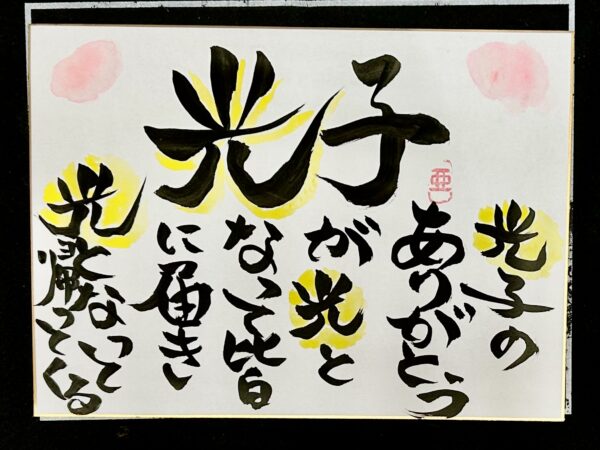 光子
光子の
ありがとう
が光と
なって皆
に届き
光となって
帰ってくる